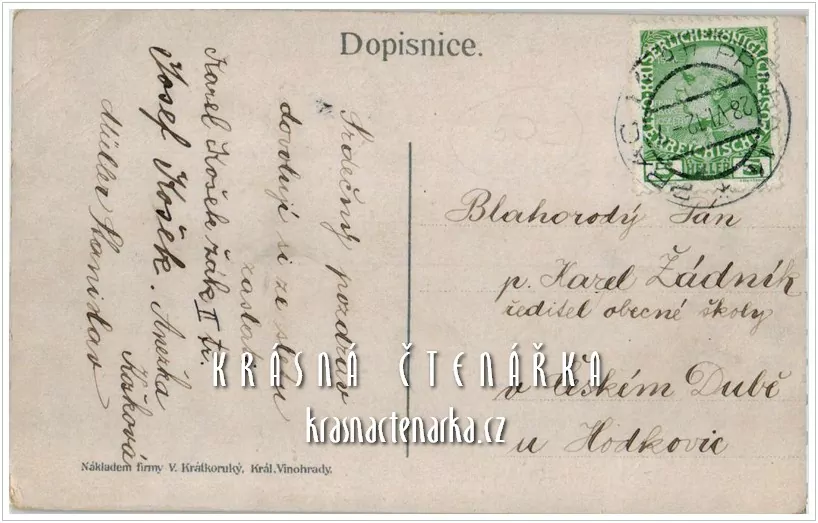 Dopisnice.
Srdečný pozdrav
dovoluji si ze sletu
zaslati
Karel Košek žák II tř.
Josef Košek. Anežka
Košková
Müller Stanislav
KAISERLICHE KÖNIGLICHE
ÖSTERREICHISCHE
HELLER
28.VI.12
Blahorodý Pan
p. Karel Žádník
ředitel obecné školy
v Českém Dubě
u Hodkovic
KRÁSNÁ ČTENÁŘKA
krasnactenarka.cz
Nákladem firmy V. Krátkoruký, Král. Vinohrady.